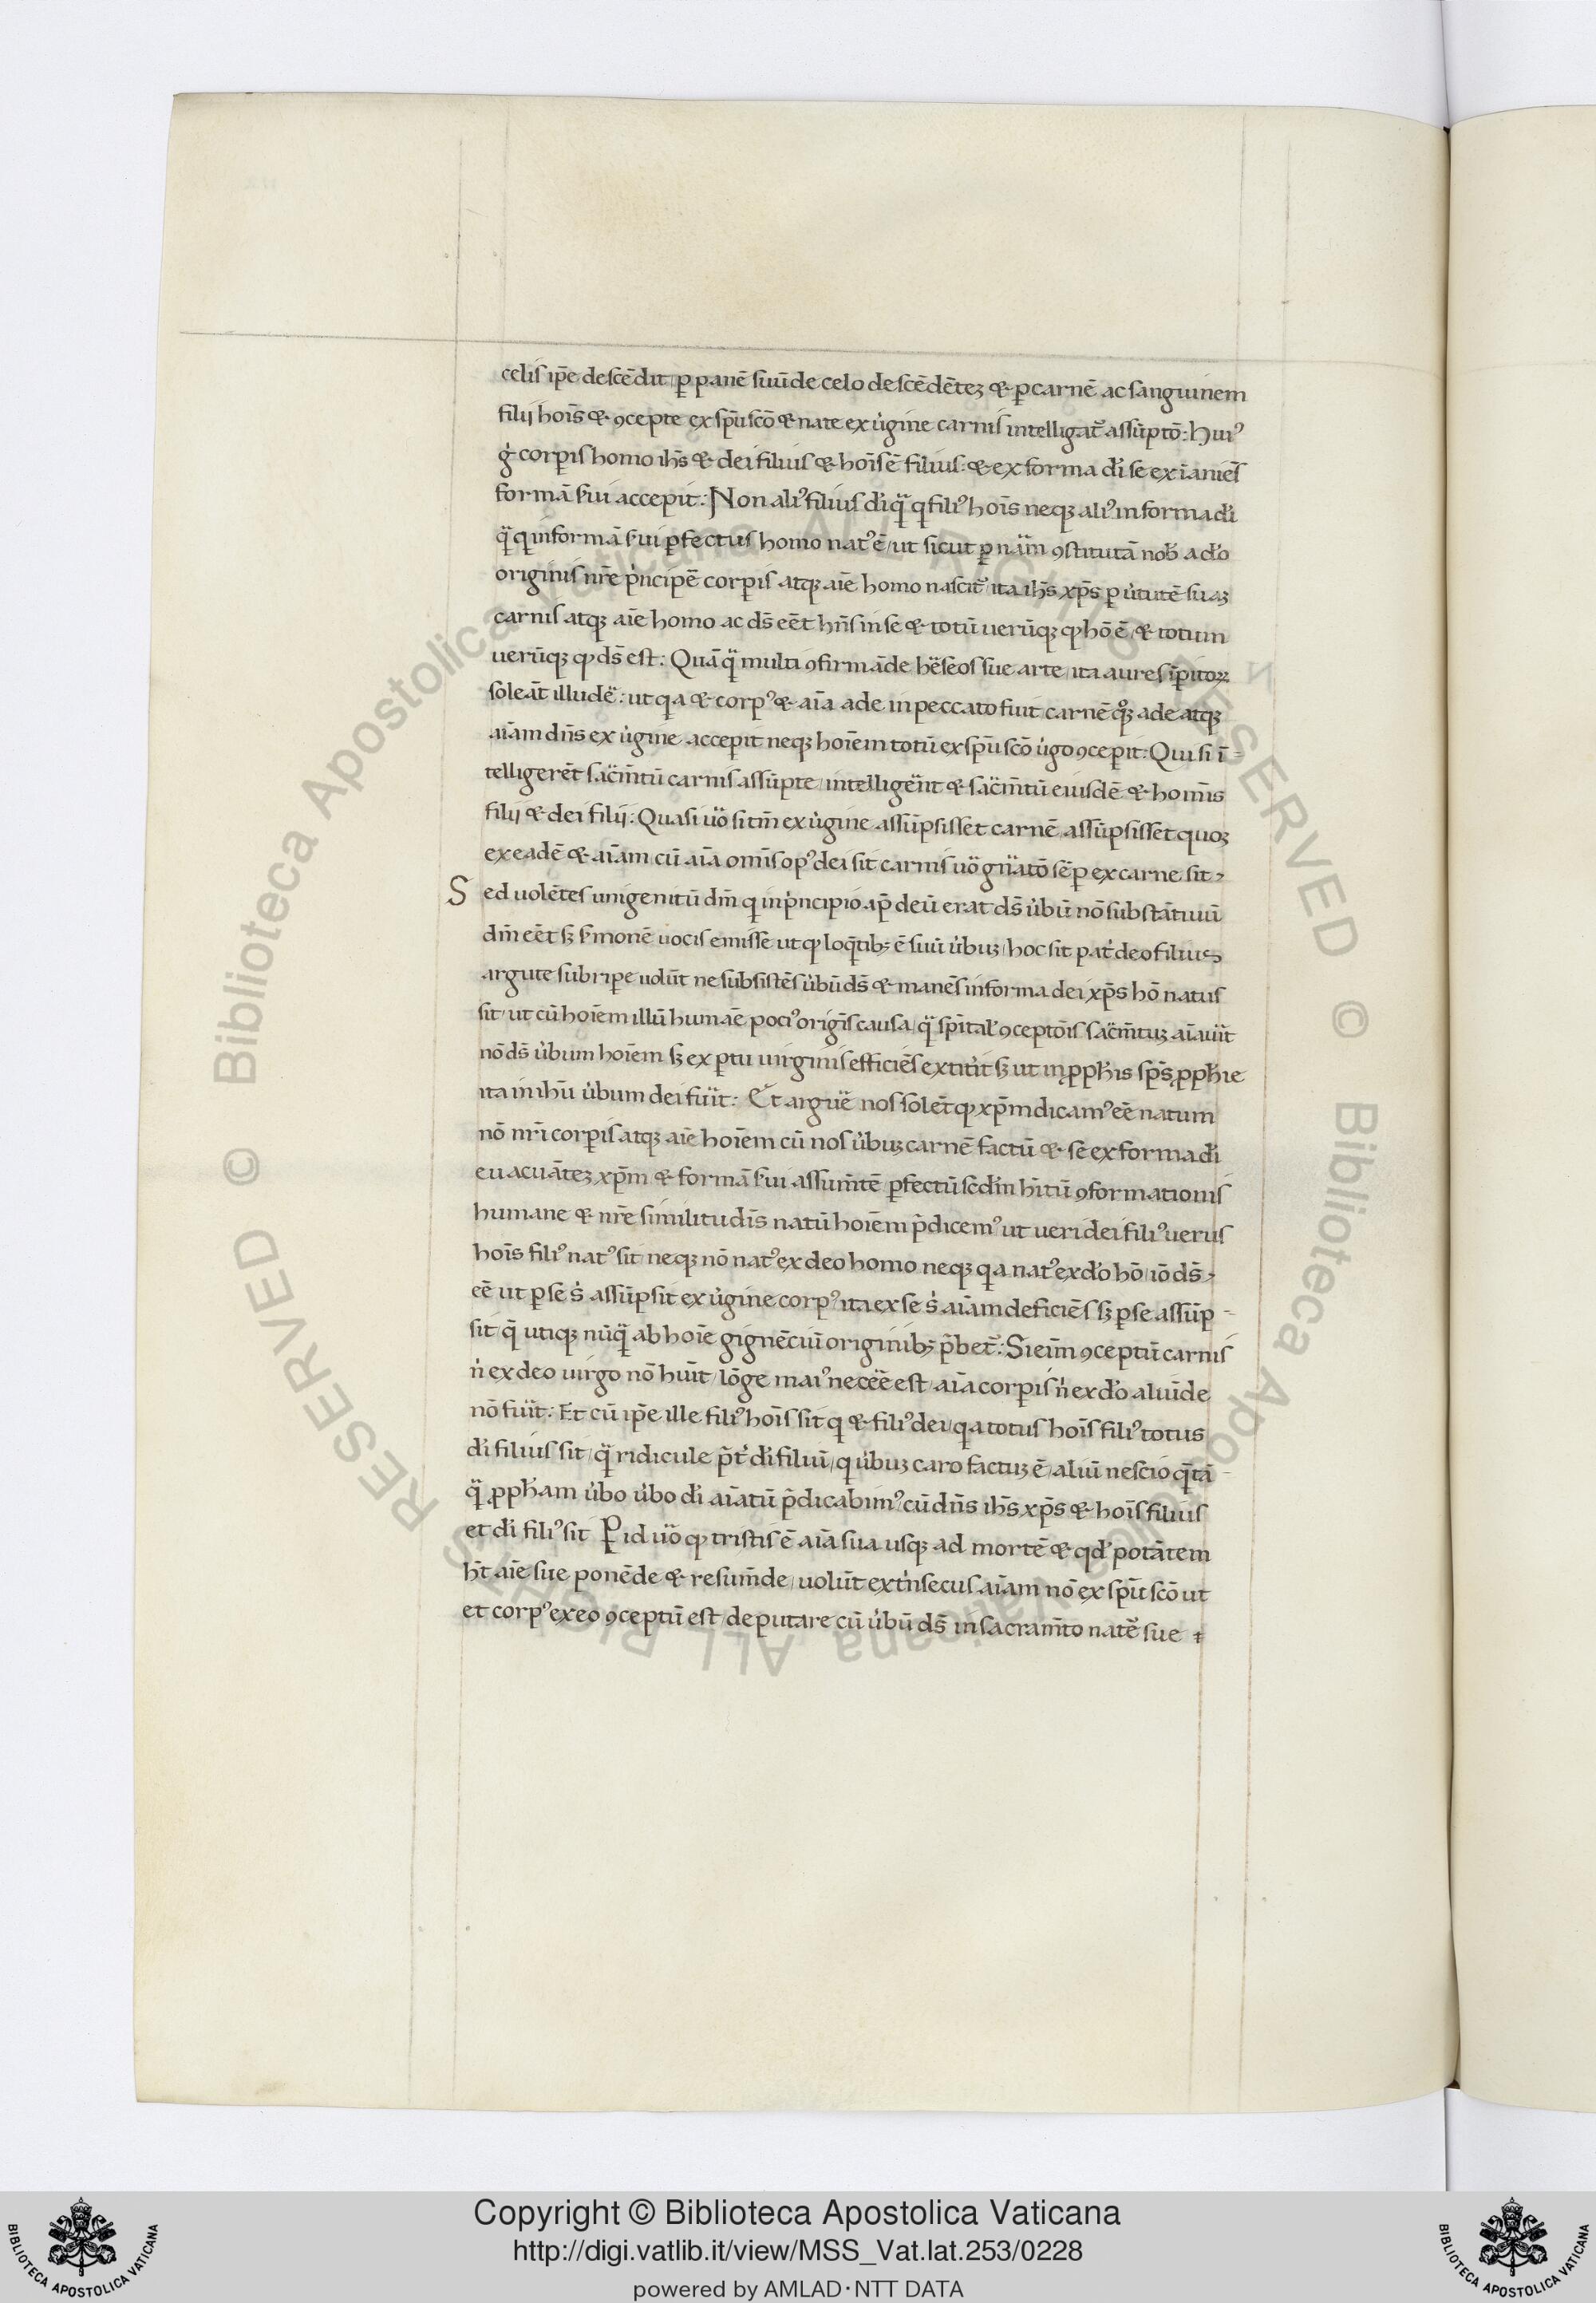 celis ip̄e descēdit, ꝑ panē suū de celo descēdētez & ꝑ carnē ac sanguinem
filij hoīs & ꝯcepte ex sp̄u scō & nate ex ủgine carnis intelligat᷑ assūptō: Huiꝰ
g̓ corꝑis homo ih̄s & dei filius & hoīs ē filius: & ex forma di̓ se exīaniēs
formā s̓ui accepit: Non aliꝰ filius di̓ q̈̄ q filiꝰ hoīs neqꝫ aliꝰ in forma di̓
q̈̄ q in formā s̓ui ꝑfectus homo natꝰ ē, ut sicut ꝑ nām̄ ꝯstitutā nob̓ a do̓
originis nr̄e p̓ncipē corꝑis atqꝫ aīe homo nascit᷑ ita ih̄s xp̄s ꝑ ủtutē suaꝫ
carnis atqꝫ aīe homo ac ds̄ eēt hn̄s in se & totū uerūqꝫ qꝫ hō ē, & totum
uerūqꝫ ꝙ ds̄ est: Quā q̈̄ multi ꝯfirmāde hës̄eos sue arte, ita aures īꝑitoꝝ
soleāt illudë: ut q̄a & corpꝰ & aīa ade in peccato fuit carnē q̊ꝫ ade atqꝫ
aīam dn̄s ex ủgine accepit neqꝫ hoīem totū ex sp̄u scō ủgo ꝯcepit: Qui si ī=
telligerēt sac̄m̄tū carnis assūpte, intelligēnt & sac̄m̄tū eiusdē & homīs
filij & dei filij: Quasi uö si tm̄ ex ủgine assūpsisset carnē, assūpsisset quoꝫ
ex eadē & aīam, cū aīa omīs opꝰ dei sit carnis uö gn̈atō sēꝑ ex carne sit,
S ed uolētes unigenitū dm̄ q in p̓ncipio ap̄ deū erat ds̄ ủbū nō substātiuū
dm̄ eēt sꝫ s̓monē uocis emisse ut ꝙ loq̄tibꝫ ē suū ủbuꝫ, hoc sit pat̓ deo filius
argute subripe uolūt ne subsistēs ủbū ds̄ & manēs in forma dei xp̄s hō natus
sit, ut cū hoīem illū humaē pociꝰ origīs causa, q̈̄ sp̄ital̓ ꝯceptōis sac̄m̄tuꝫ aīauīt
nō ds̄ ủbum hoīem sꝫ ex ꝑtu uirginis efficiēs extitīt sꝫ ut in ꝓph̄is sp̄s ꝓph̄ie
ita in ih̄u ủbum dei fuīt: Et arguë nos solēt ꝙ xp̄m dicamꝰ eē natum
nō nr̄i corꝑis atqꝫ aīe hoīem cū nos ủbuꝫ carnē factū & se ex forma di̓
euacuātez xp̄m & formā s̓ui assum̄tē, ꝑfectū sed̄m h̄itū ꝯformationis
humane & nr̄e similitudīs natū hoīem p̄dicemꝰ ut ueri dei filiꝰ uerus
hoīs filiꝰ natꝰ sit neqꝫ nō natꝰ ex deo homo neqꝫ q̄a natꝰ ex do̓ hō, iō ds̄,
eē ut ꝑ se s̓ assūpsit ex ủgine corpꝰ ita ex se s̓ aīam deficiēs sꝫ ꝑ se assūp-
sit q̄ utiqꝫ nūq̈̄ ab hoīe gignēciū originibꝫ p̄bet᷑: Si eīm ꝯceptū carnis
n̓ ex deo uirgo nō huīt, lōge maiꝰ neceē est, aīa corꝑis n̓ ex do̓ aluīde
nō fuīt: Et cū ip̄e ille filiꝰ hoīs sit q & filiꝰ dei, q̄a totus hoīs filiꝰ totus
di̓ filius sit, q̈̄ ridicule p̄t̓ di̓ filiū, q ủbuꝫ caro factuꝫ ē, aliū nescio q̄tā-
q̈̄ ꝓph̄am ủbo ủbo di̓ aīatū p̄dicabimꝰ cū dn̄s ih̄s xp̄s & hoīs filius
et di̓ filiꝰ sit Pid uö ꝙ tristis ē aīa sua usqꝫ ad mortē & qd̓ potātem
h̄t aīe sue ponēde & resum̄de, uolūt ext̓nsecus aīam nō ex sp̄u scō ut
et corpꝰ ex eo ꝯceptū est, deputare cū ủbū ds̄ in sacram̄to natē sue
Copyright © Biblioteca Apostolica Vaticana
http://digi.vatlib.it/view/MSS_Vat.lat.253/0228
powered by AMLAD·NTT DATA